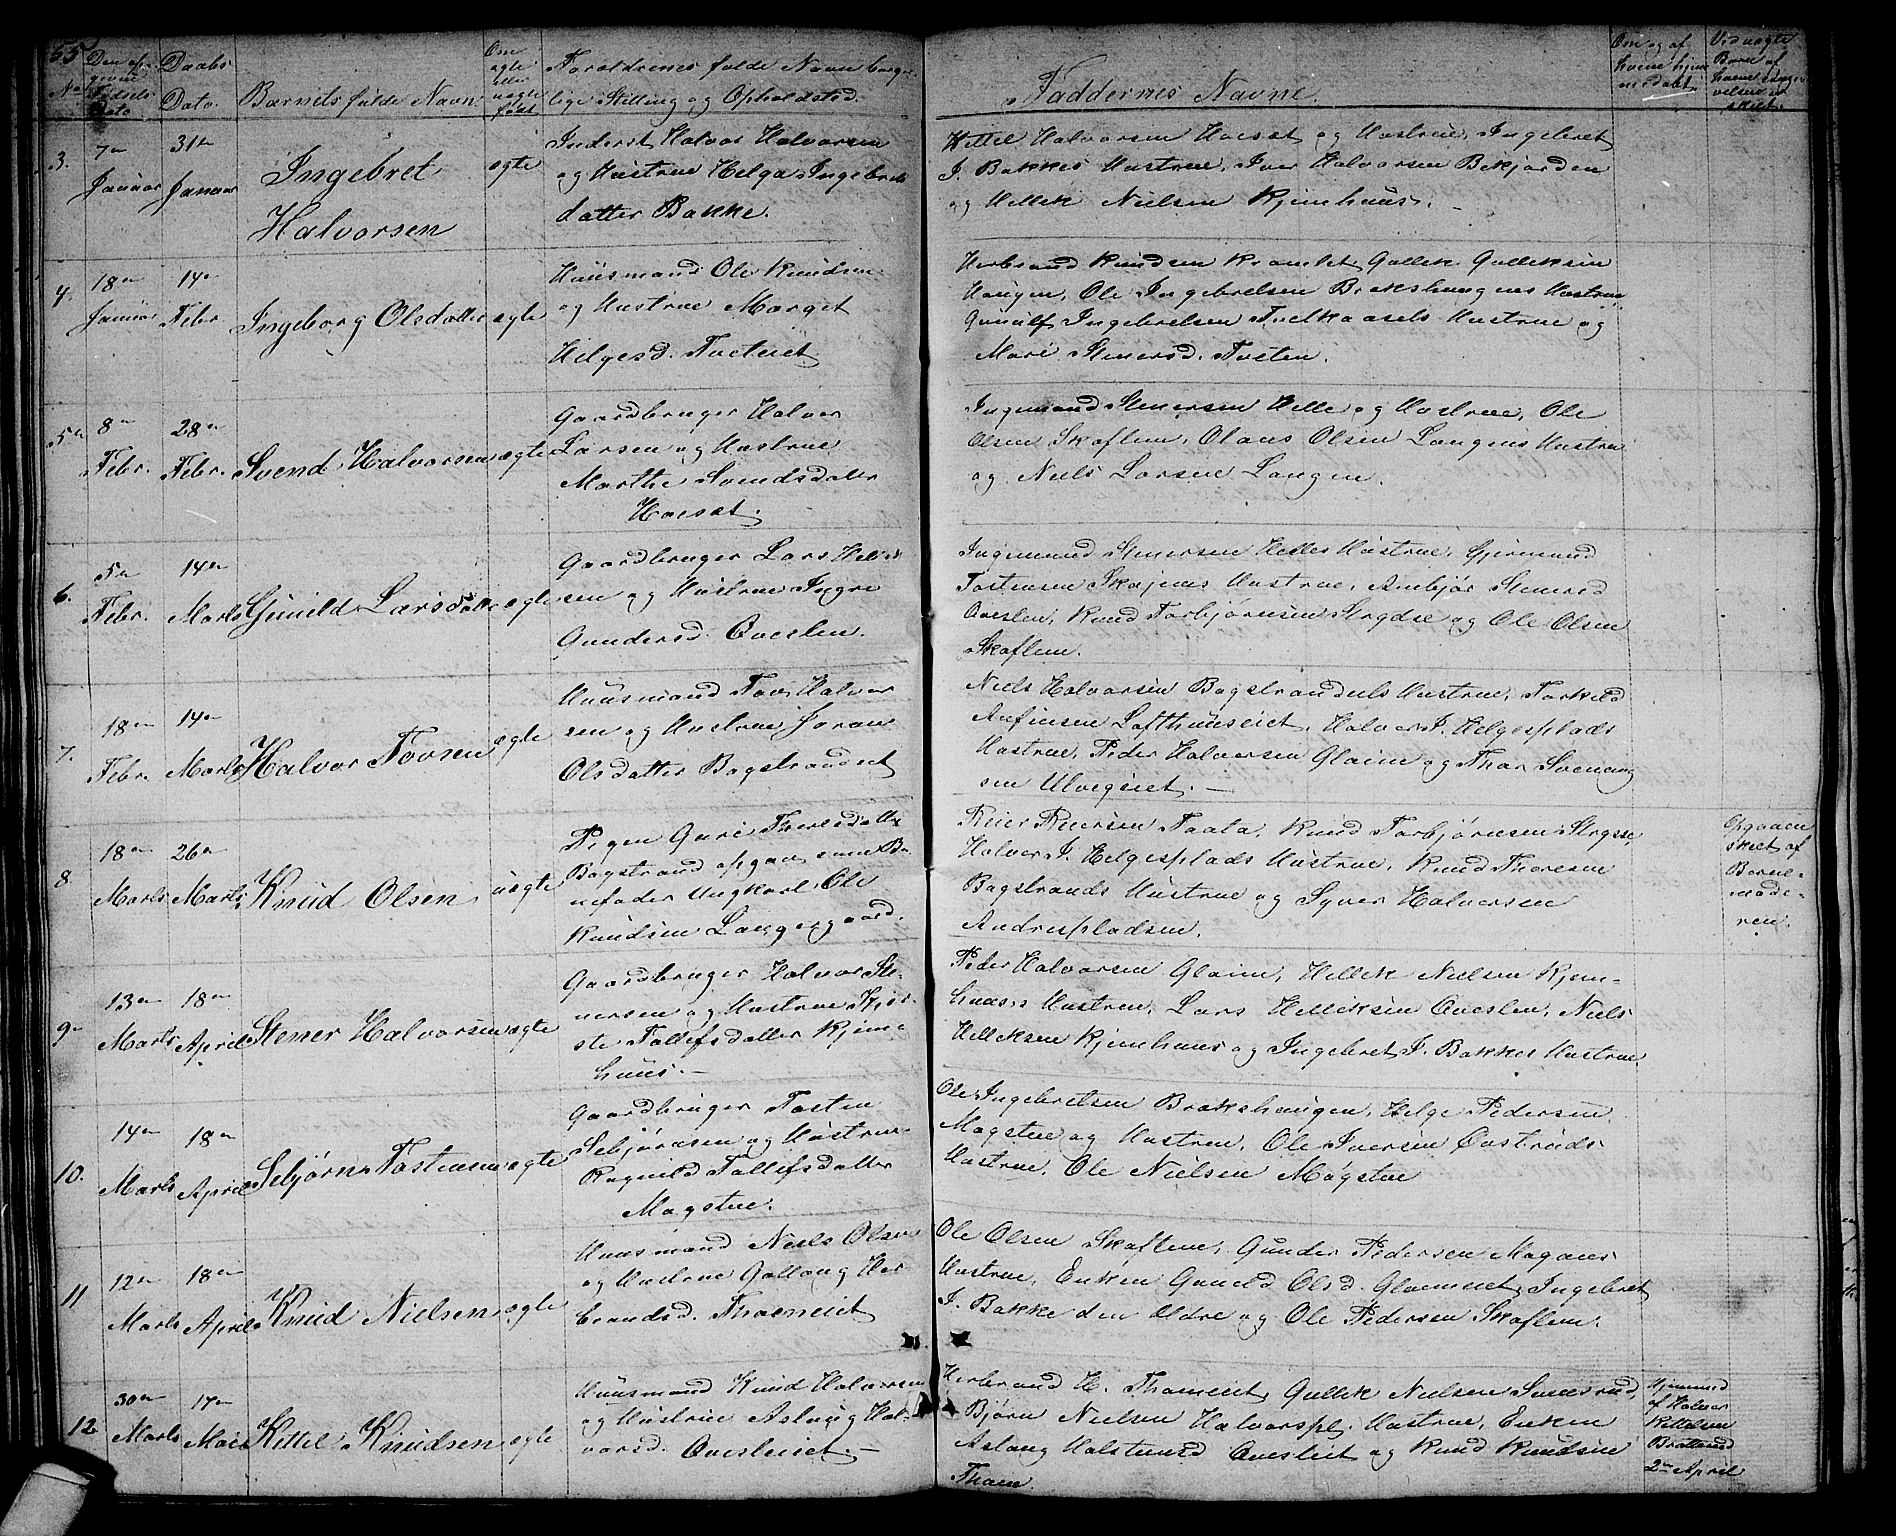 55
No
Den op-
givne
Fødsels
Dato
Daabs
Dato.
Barnets fulde Navn
Om
ægte
eller
uægte
født
Forældrenes fulde Navn borger-
lige Stilling og Opholdsted.
Faddernes Navne.
Om og af
hvem hjem
medøbt
Ved uægte
Børn af
skeet.
3.
7de
Januar
31te
Januar
Ingebret
Halvorsen
ægte
Inderst Halvor Halvorsen
og Hustrue Helga Ingebrets
datter Bakke.
Kittil Halvorsen Hoesæt og Hustrue, Ingebret
I. Bakkes Hustrue, Iver Halvorsen Bekjorden
og Hellik Nielsen Kjemhuus.
4.
18de
Januar
14de
Febr
Ingeborg Olsdatter
ægte
Huusmand Ole Knudsen
og Hustrue Marget
Helgesd. Tveteiet
Herbrand Knudsen Gullik Gulliksen
Haugen, Ole Ingebretsen Brekshaugens Hustrue
Gunulf Ingebretsen Hustrue og
Mari Stenersd. Tveten.
5te
8de
Febr.
28de
Febr.
Svend Halvorsen
ægte
Gaardbruger Halvor
Larsen og Hustrue
Marthe Svendsdatter
Hoesæt.
Ingemund Stenersen Helle og Hustrue, Ole
Olsen Skaflem, Olaus Olsen Langens Hustrue
og Niels Larsen Langen.
6.
5te
Febr.
14de
Marts
Gunild Larsdatter
ægte
Gaardbruger Lars Hellik
sen og Hustrue Ingre
Gundersd. Oveslen.
Ingemund Stenersen Helles Hustrue, Gjermund
Tostensen Skajems Hustrue, Anbjør Stenersd
Oveslen, Knud Torbjørnsen Strydse og Ole Olsen
Skaflem.
7.
18de
Febr.
14de
Marts
Halvor Tovsen
ægte
Huusmand Tov Halvor
sen og Hustrue Joran
Olsdatter Bagstrandeiet
Niels Halvorsen Bagstrandeiets Hustrue, Torkild
Anfinsen Lofthuuseiet, Halvor I. Helgesplads
Hustrue, Peder Halvorsen Glaim og Thor Svenung
sen Ulvigeiet.
8.
18de
Marts
26de
Marts
Knud Olsen
uægte
Pigen Guri Thoresdatter
Bagstrand opgav som Bar
nefader Ungkarl Ole
Knudsen Langegaard.
Reier Reiersen Taata, Knud Torbjørnsen Strysse,
Halvor I. Helgesplads Hustrue, Knud Thoresen
Bagstrands Hustrue og Syver Halvorsen
Andrespladsen.
Opgaaven
skeet af
Barne-
mode-
ren.
9de
13de
Marts
18de
April
Stener Halvorsen
ægte
Gaardbruger Halvor Ste-
nersen og Hustrue Kjer-
ste Tollefsdatter Kjem-
huus.
Peder Halvorsen Glaim, Hellik Nielsen Kjem-
huus's Hustrue, Lars Helliksen Oveslen, Niels
Helliksen Kjemhuus og Ingebret I. Bakkes Hustrue
10.
14de
Marts
18de
April
Sebjørn Tostensen
ægte
Gaardbruger Tosten
Sebjørnsen og Hustrue
Ragnild Tollefsdatter
Magstue.
Ole Ingebretsen Brekshaugen, Helge Pedersen
Magstue og Hustrue, Ole Iversen Oostruds
Hustrue, Ole Nielsen Magstue
11
12de
Marts
18de
April
Knud Nielsen
ægte
Huusmand Niels Olsen
og Hustrue Gollaug Her
brandsd. Thoeneiet
Ole Olsen Skaflem, Gunder Pedersen Moeans
Hustrue, Enken Gunild Olsd. Gloemeiet, Ingebret
I. Bakke den Eldre og Ole Pedersen Skaflem.
12
30de
Marts
17de
Mai
Kittel Knudsen
ægte
Huusmand Knud Halvorsen
og Hustrue Aslaug Hal-
vorsd. Ovesleiet.
Herbrand H. Thomeiet, Gullik Nielsen
Bjørn Nielsen Halvorspl. Hustrue, Enken
Aslaug Halstensd Ovesleiet og Knud Knudsen
Thoen.
Hjemmed
af Halvor
Kittilsen
Bratterud
2den April